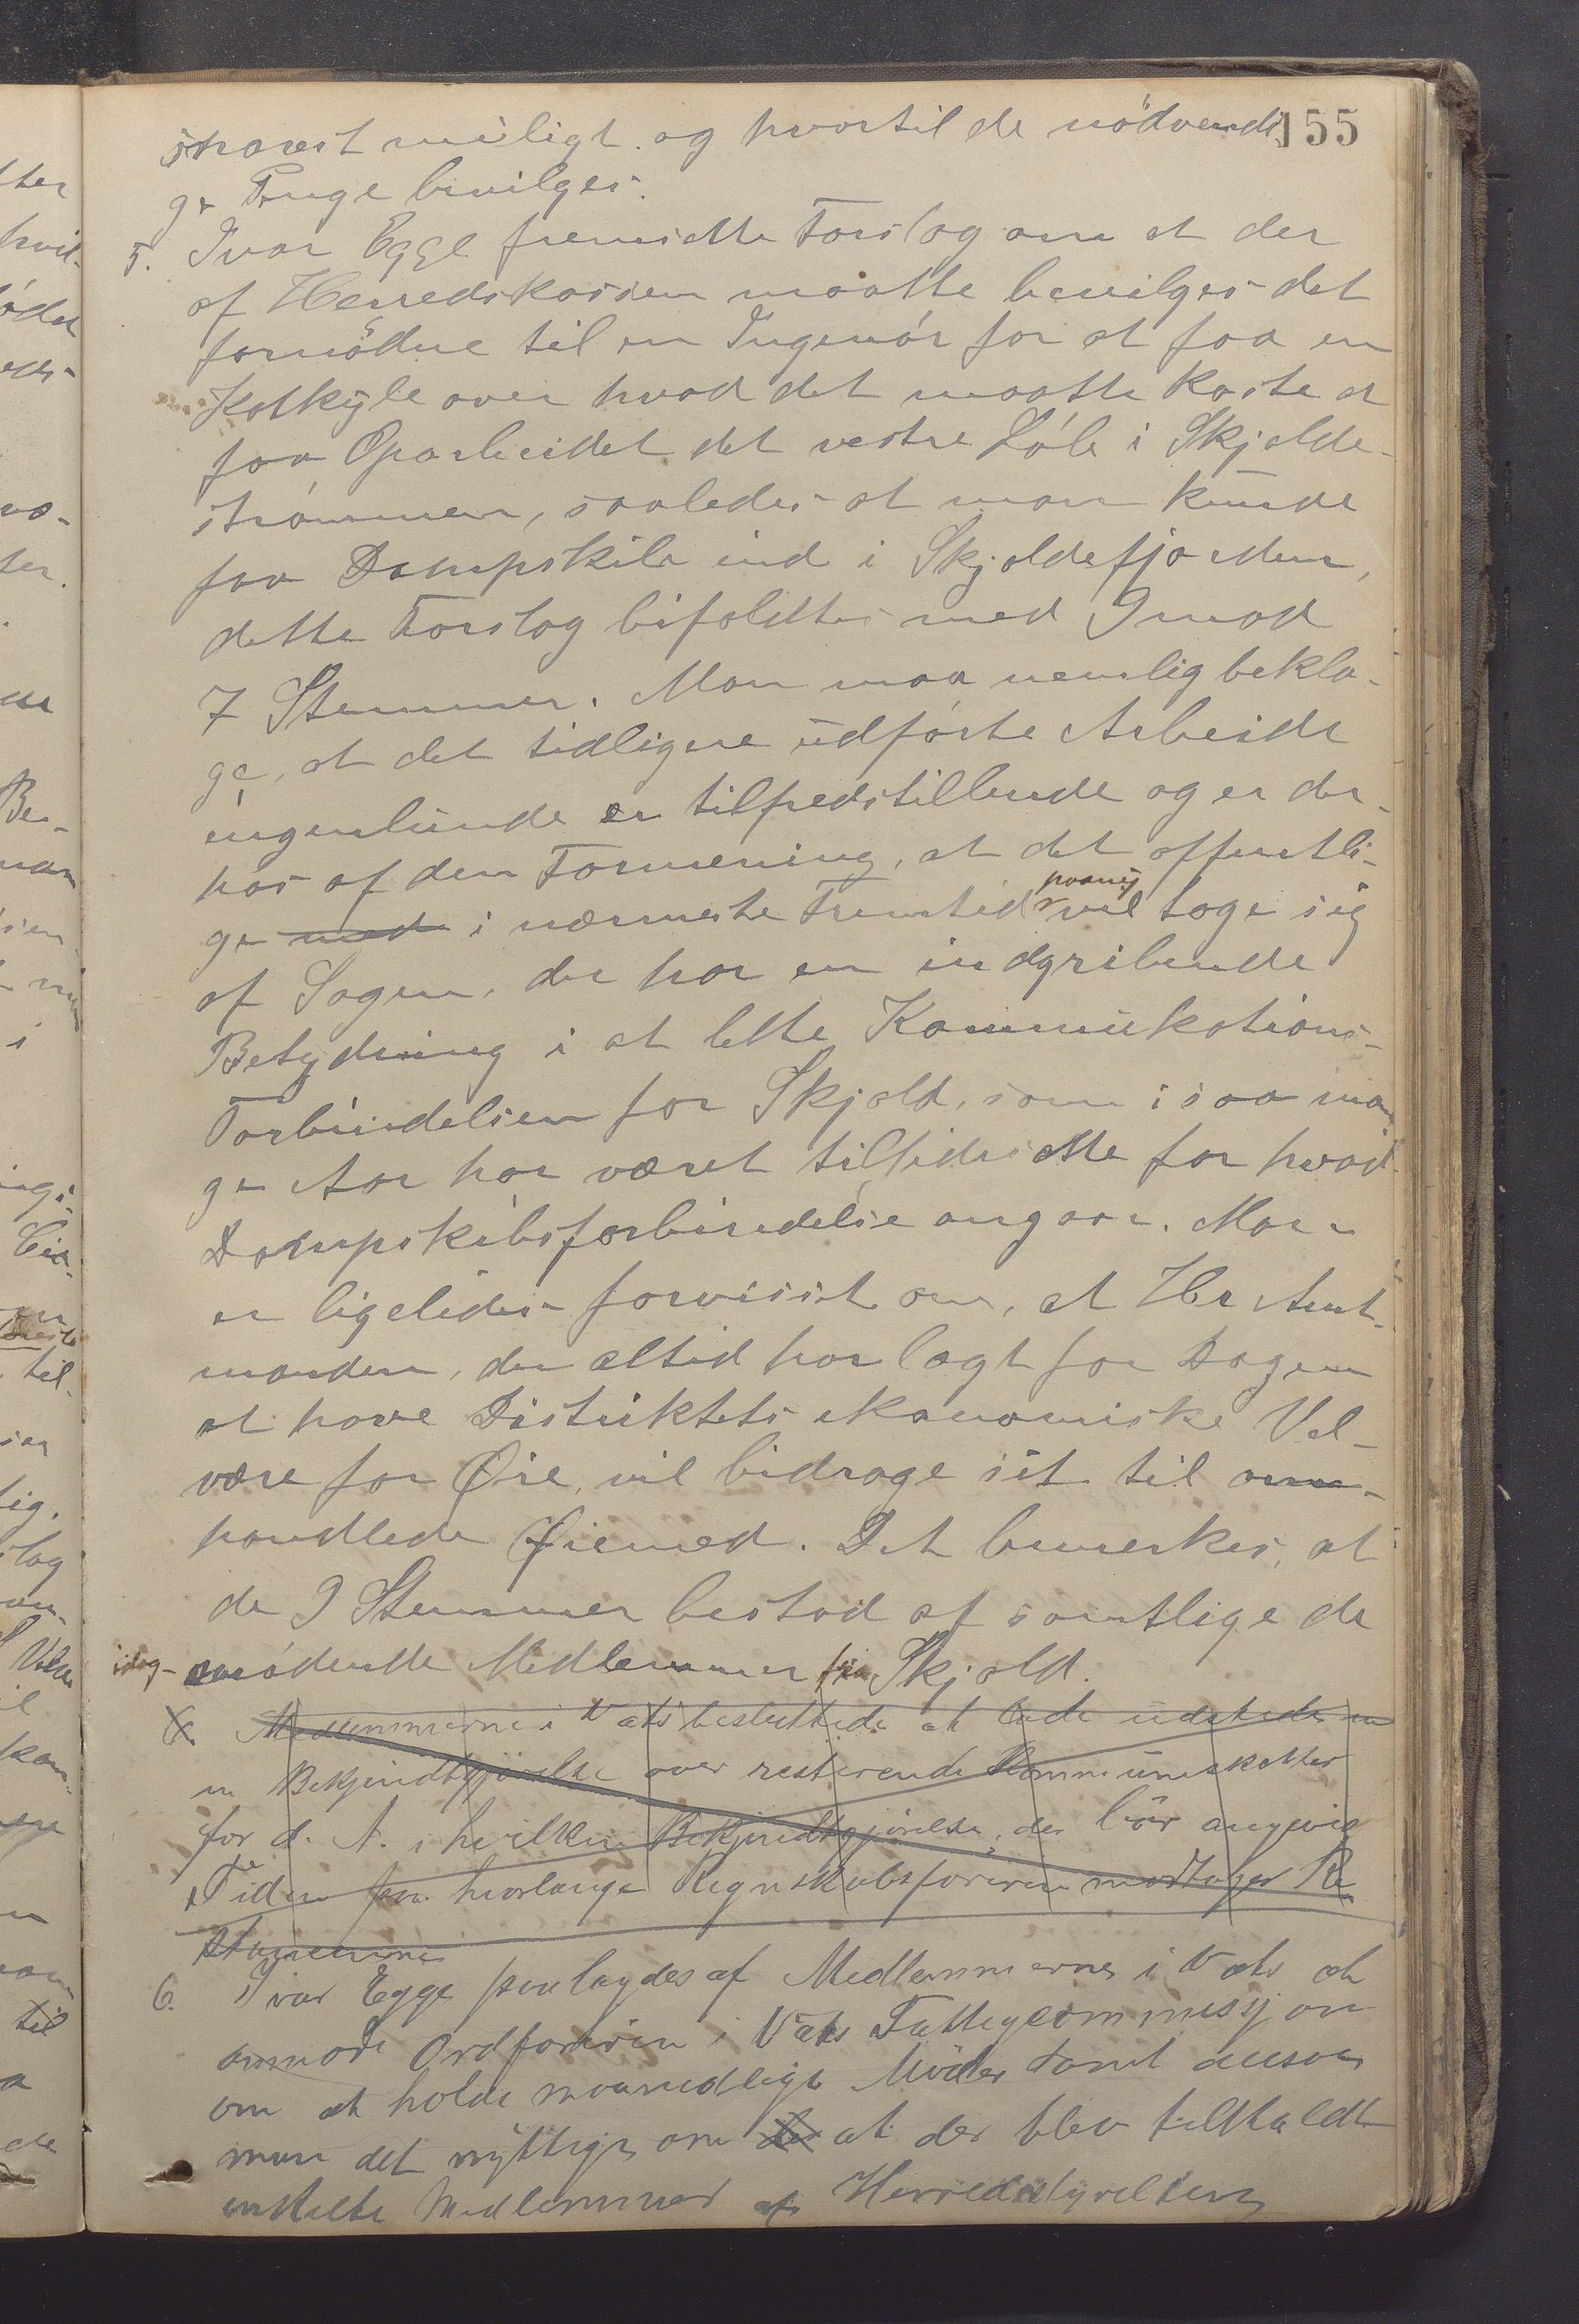 155
snarest muligt og hvortil de nödvendi
ge Penge bevilges.
5. Ivar Egge fremsatte Forslag om at der
af Herredskassen maatte bevilges det
fornödne til en Ingeniör for at faa en
Kalkyle over hvad det maatte koste at
faa Oparbeidet det vestre Löb i Skjolde-
strömmen, saaledes at man kunde
faa Dampskibe ind i Skjoldefjorden,
dette Forslag bifaldtes med 9 mod
7 Stemmer. Man maa nemlig bekla-
ge, at det tidligere udförte Arbeide
ingenlunde er tilfredstillende og er der-
hos af den Formening, at det offentli-
ge med i nærmeste Fremtid paany vil tage sig
af Sagen, der har en indgribende
Betydning i at lette Kommunikations-
Forbindelsen for Skjold, som i saa man
ge Aar har været tilsidesatte for hvad
Dampskibsforbindelse angaar. Man
er ligeledes forvisset om, at Hr Amt-
manden, der altid har lagt for Dagen
at have Distriktets ekonomiske Vel-
være for Øie, vil bidrage sit til om-
handlede Øiemed. Det bemerkes, at
de 9 Stemmer bestod af samtlige de
idag mödende Medlemmer fra Skjold.
6. Medlemmerne i Vats besluttede at lade udstede en
en Bekjendtgjörelse over resterende Kommuneskatter
for d. A. i hvilken Bekjendtgjörelse, der bör angives
Tiden for hvorlænge Regnskabsföreren modtager Re
stancerne
6. Ivar Egge paalagdes af Medlemmerne i Vats at
anmode Ordföreren i Vats Fattigcommissjon
om at holde maanedlige Möder samt ansaa
man det nyttigt om der at der blev tilkaldt
enkelte Medlemmer af Herredsstyrelsen